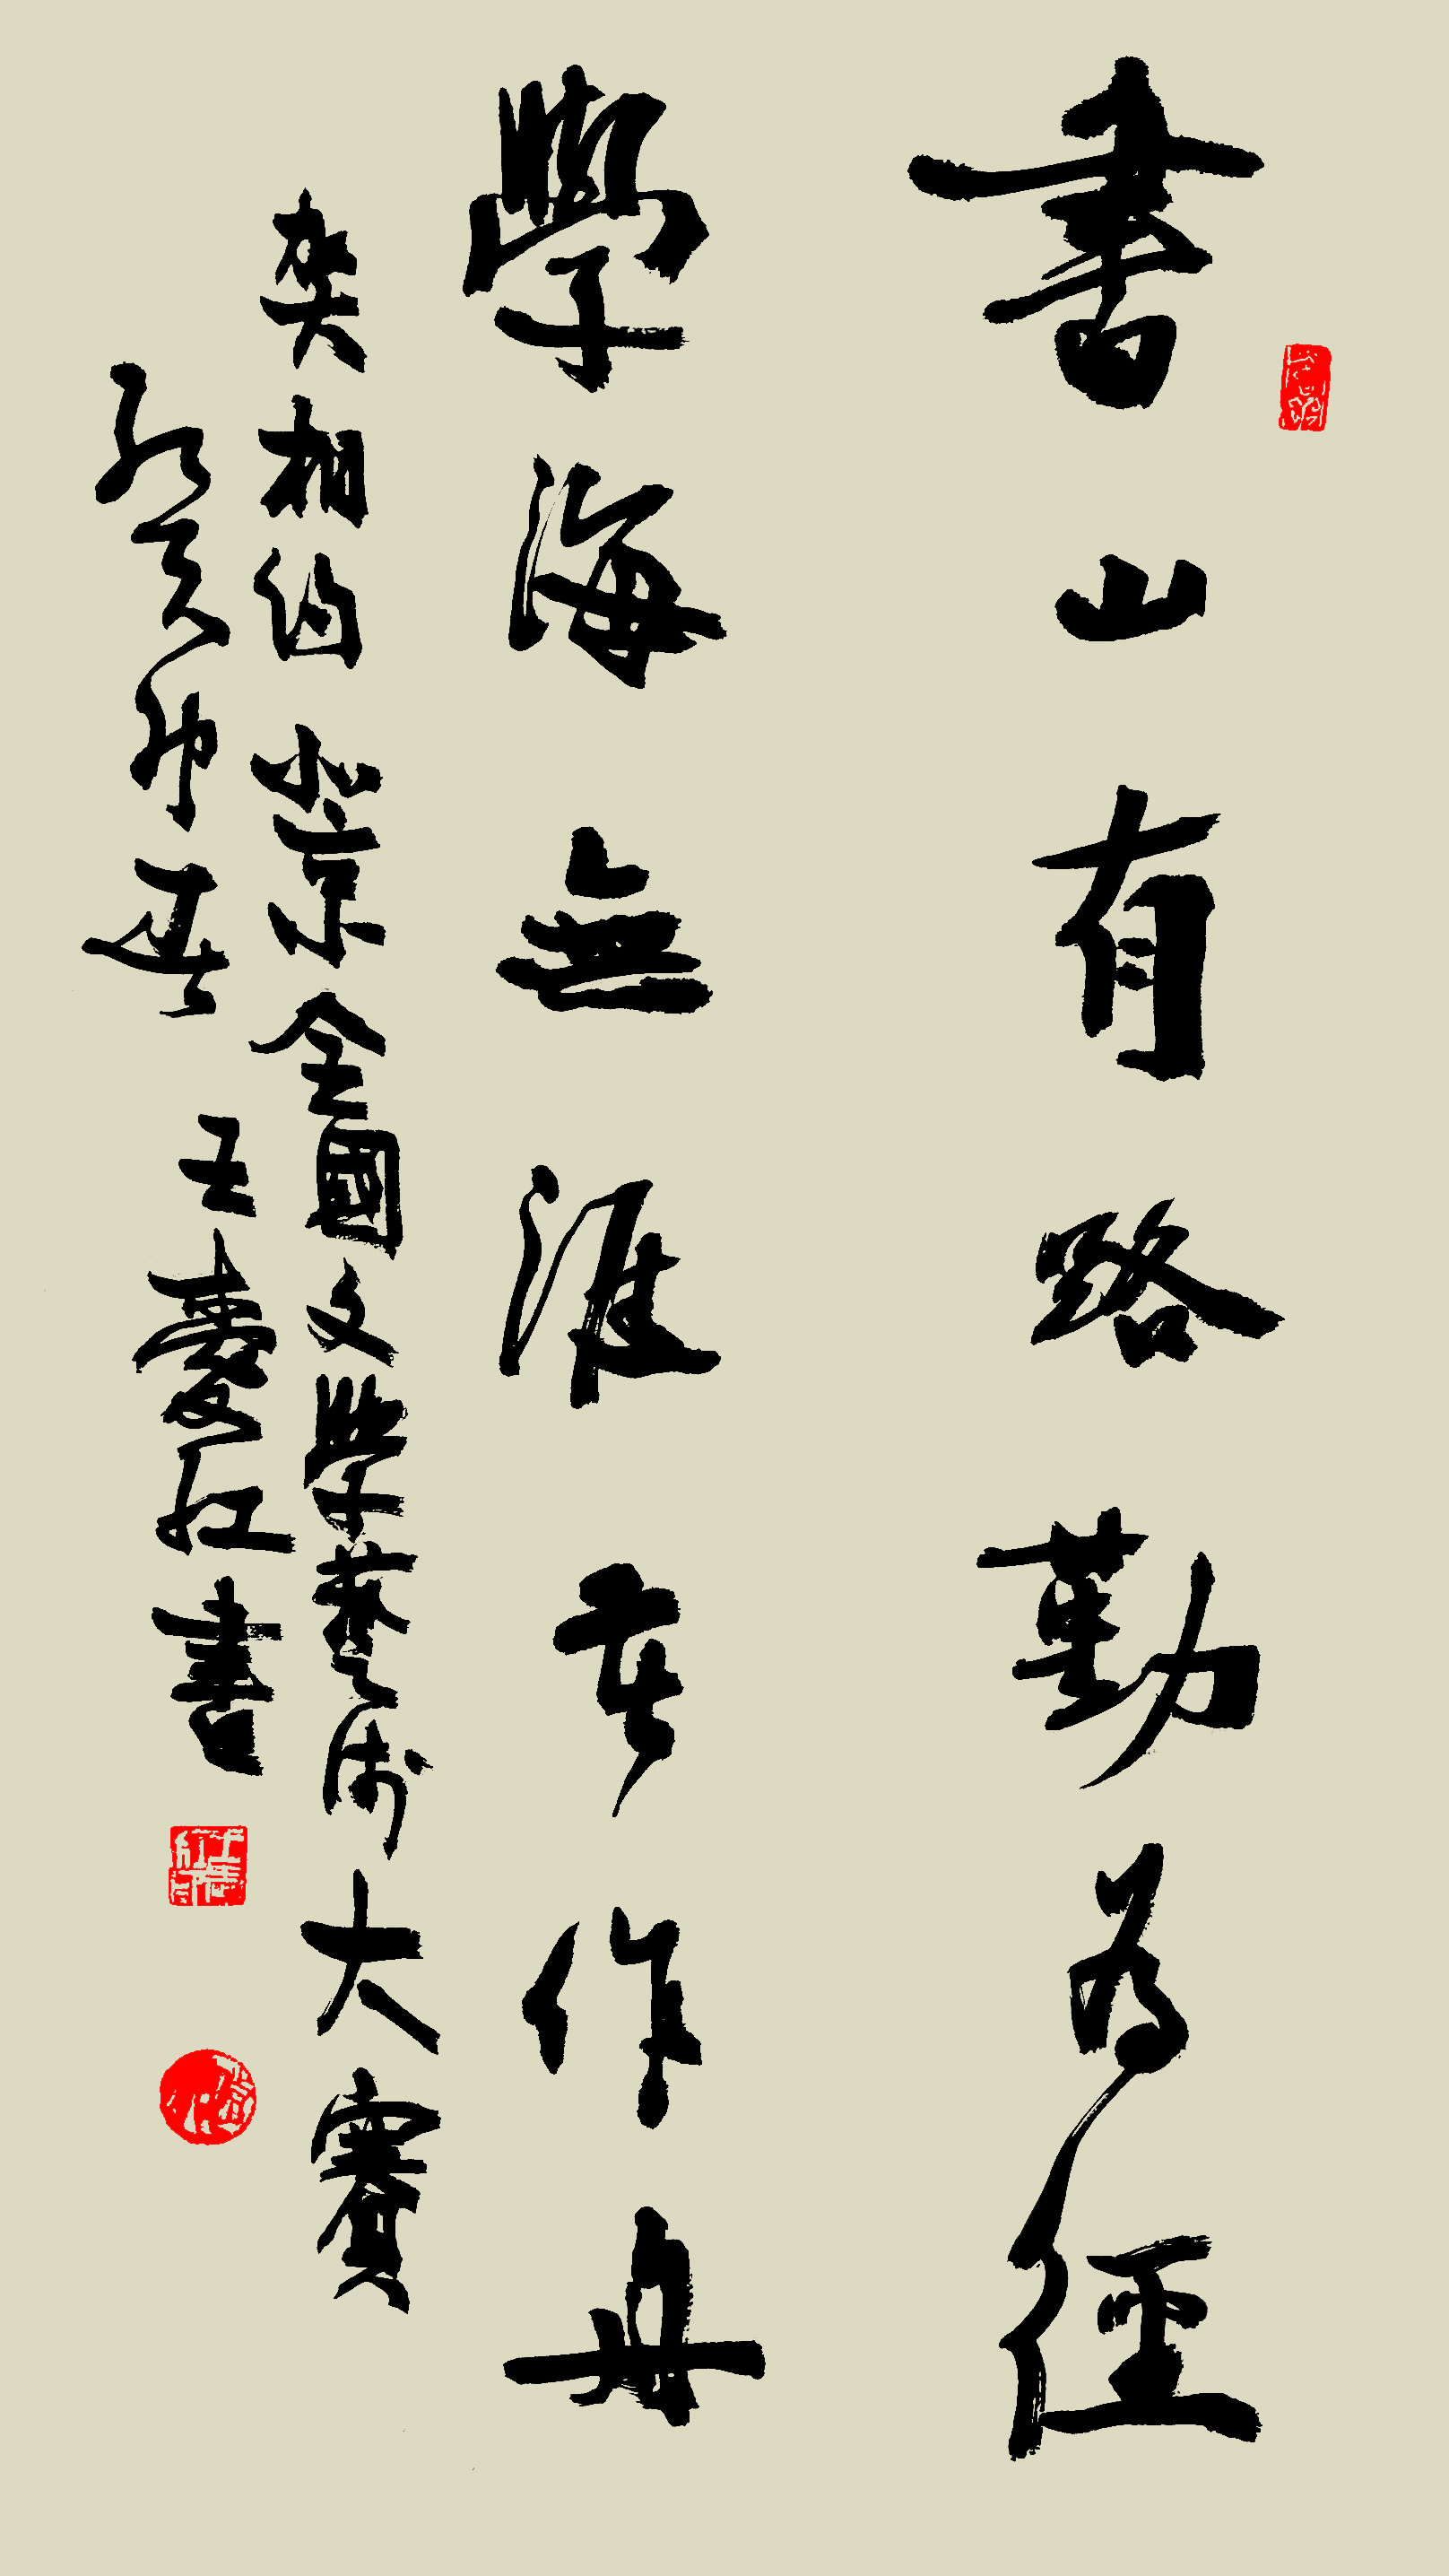 書山有路勤為徑
學海無涯苦作舟
相約北京全國文學藝術大賽
癸卯春 王慶紅書